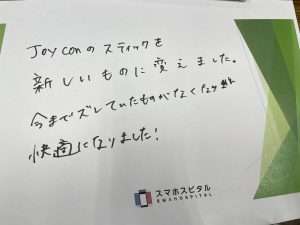 JOY conのスティックを
新しいものに変えました。
今までズレていたものがなくなり
快適になりました!
スマホスピタル
SMAHOSPITAL